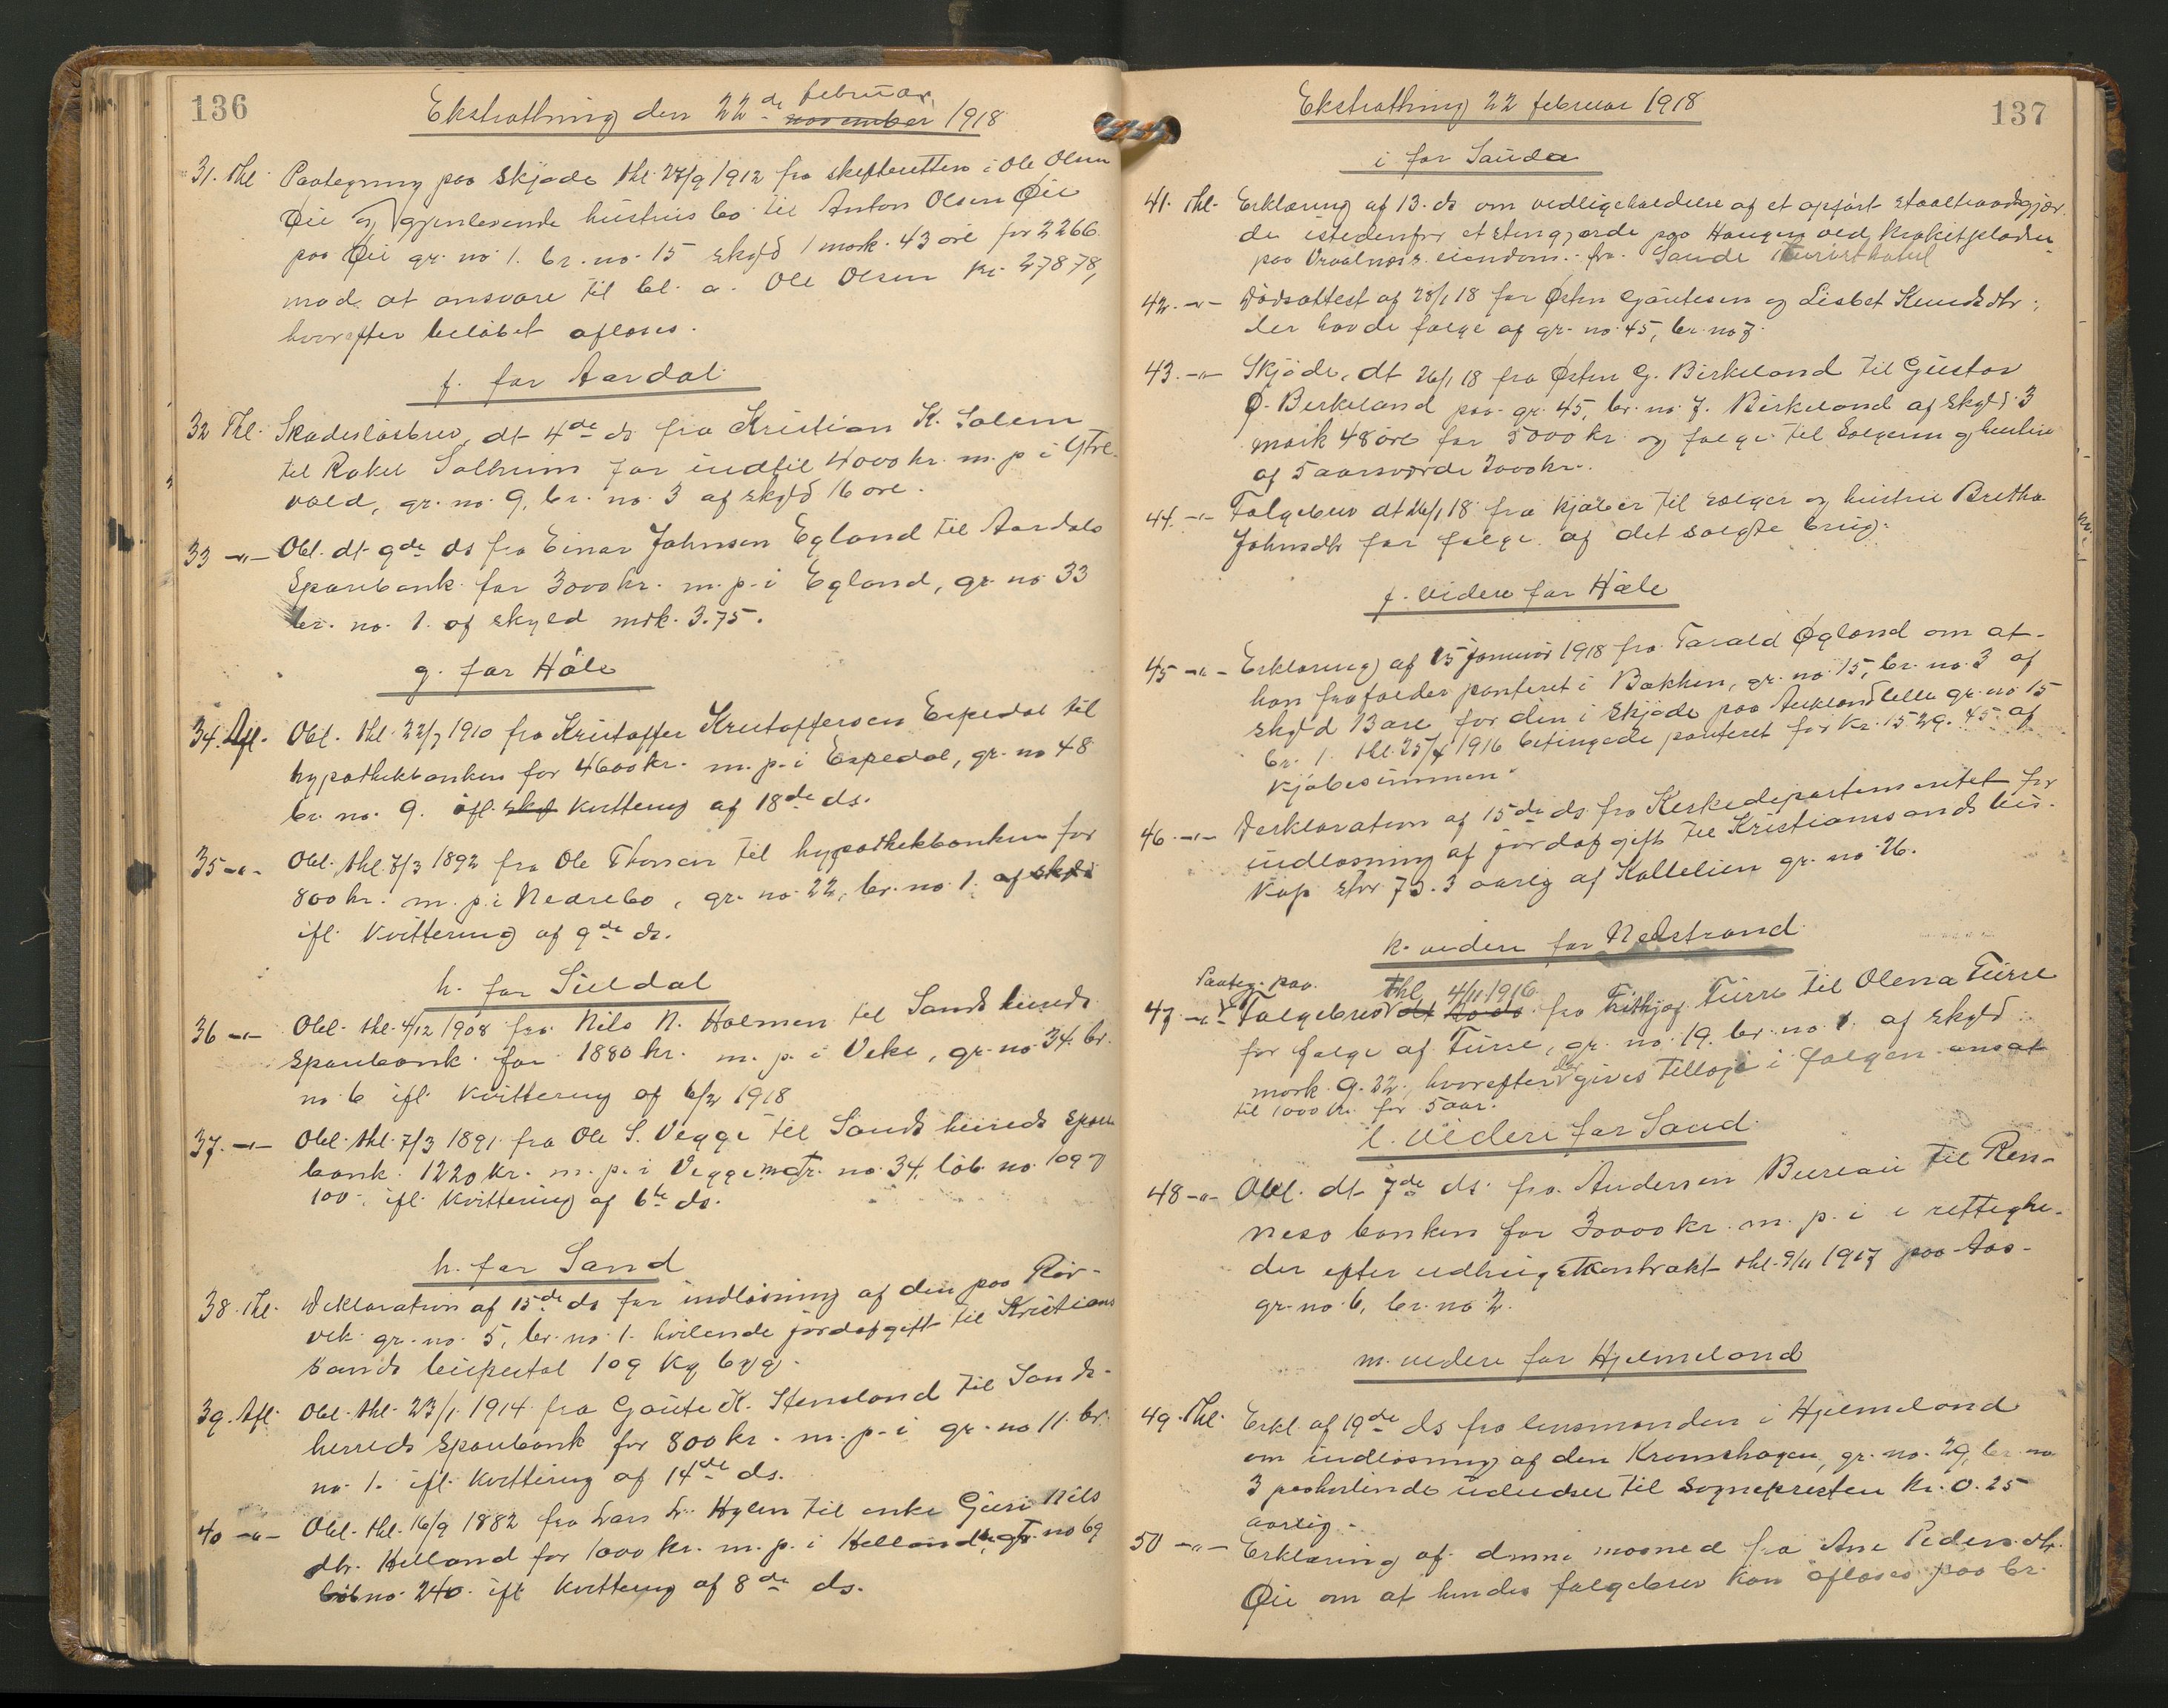 136
Ekstrathing den 22de februar november 1918
31. Thl. Paategning paa skjøde thl. 27/9 1912 fra skifteretten i Ole Olsen
Øie og gjenlevende hustrus bo til Anton Olsen Øie
paa Øie gr. no 1. br. no. 15 skyld 1 mark. 43 øre for 2266
mod at ansvare til bl. a. Ole Olsen kr. 278 78,
hvorefter beløbet afløses.
f. for Aardal
32 Thl. Skadesløsbrev, dt 4de ds fra Kristian K. Solem
til Rakel Solheim for indtil 4000 kr. m. p. i
vald, gr. no. 9, br. no. 3 af skyld 16 øre.
33 -"- Obl. dt. 9de ds fra Einar Johnsen Egland til Aardals
Sparebank for 3000 kr. m. p. i Egland, gr. no 33
br. no. 1. af skyld mrk. 3.75.
g. for Høle
34. Afl. Obl. thl. 22/7 1910 fra Kristoffer Kristoffersen Espedal til
hypothekbanken for 4600 kr. m. p. i Espedal, gr. no 48
br. no. 9. ifl. skyl kvittering af 18de ds.
35 -"- Obl. thl. 7/3 1892 fra Ole Thorsen til hypothekbanken for
800 kr. m. p. i Nedrebø, gr. no 22, br. no 1. af skyld
ifl. kvittering af 9de ds.
h. for Suldal
36 -"- Obl. thl. 4/12 1908 fra Nils N. Holmen til Sands herreds
sparebank for 1880 kr. m. p. i Veke, gr. no. 34. br.
no 6 ifl. kvittering af 6/2 1918
37. -"- Obl. thl. 7/3 1891 fra Ole S. Vegge til Sands herreds spare
bank 1220 kr. m. p. i Vegge mtr. no. 34, løb. no. 109 og
100. ifl. kvittering af 6te ds.
h. for Sand
38. Thl. Deklaration af 15de ds for indløsning af den paa Rør-
vik gr. no. 5, br. no 1. hvilende jordafgift til Kristians
sands bispestol 109 kg byg.
39. Afl. Obl. thl. 23/1 1914 fra Gaute K. Stensland til Sands-
herreds Sparebank for 800 kr. m. p. i gr. no 11. br.
no. 1. ifl. kvittering af 14de ds.
40 -"- Obl. thl. 16/9 1882 fra Lars L. Hylen til enke Guri Nils
dtr. Helland for 1000 kr. m. p. i Helland, no 69
løb no. 240. ifl. kvittering af 8de ds.
137
Ekstrathing 22 februar 1918
i for Sauda
41. Thl. Erklæring af 13. ds om vedligeholdelse af et opført staaltraadgjær
de istedenfor et stengjærde paa Haugen ved Krokitpladsen
paa eiendom. fra Saude Turisthotel
42. -"- Dødsattest af 28/1 18 for Østen Gautesen og Lisbet Knudsdtr.,
der havde følge af gr. no. 45, br. no 7.
43. -"- Skjøde, dt 26/1 18 fra Østen G. Birkeland til Gustav
Ø. Birkeland paa gr. 45, br. no. 7. Birkeland af skyld 3
mark 48 øre for 5000 kr. og følge til sælgeren og hustru
af 5 aarsværdi 2000 kr.
44. -"- Følgebrev dt 26/1 18 fra kjøber til sælger og hustru Bertha
Johnsdtr for følge af det solgte brug.
j. videre for Høle
45 -"- Erklæring af 15 januar 1918 fra Tarald Øgland om at
han frafalder panteret i Bakken, gr. no. 15, br. no. 3 af
skyld 13 øre for den i skjøde paa Aukland lille gr. no 15
br. 1. thl. 25/4 1916 betingede panteret for kr. 1529. 45 af
kjøbesummen.
46. -"- Deklaration af 15de ds fra Kirkedepartementet for
indløsning af jordafgift til Kristianssands bis-
kop stor 73.3 aarlig af Kallelien gr. no 26.
k. videre for Nedstrand
Paateg. paa
47 -"- Følgebrev dt thl. 4/11 1916 fra Fritjof Turre til Olena Turre
for følge af Turre, gr. no. 19. br. no 1. af skyld
mark 9.22, hvorefter der gives tillæg i følgen ansat
til 1000 kr. for 5 aar.
l. videre for Sand
48 -"- Obl. dt 7de ds fra Andersen Bureau til Ren-
nesø banken for 30000 kr. m. p. i rettighe-
der efter udbrugstkontrakt thl. 9/11 1917 paa Aas-
gr. no. 6, br. no 2.
m. videre for Hjelmeland
49. Thl. Erkl. af 19de ds fra lensmanden i Hjelmeland
om indløsning af den Kromshagen, gr. no. 29, br. no
3 paahvilende til Sognepresten kr. 0.25
aarlig.
50 -"- Erklæring af denne maaned fra Ane Pedersdtr.
Øie om at hendes følgebrev kan afløses paa br.